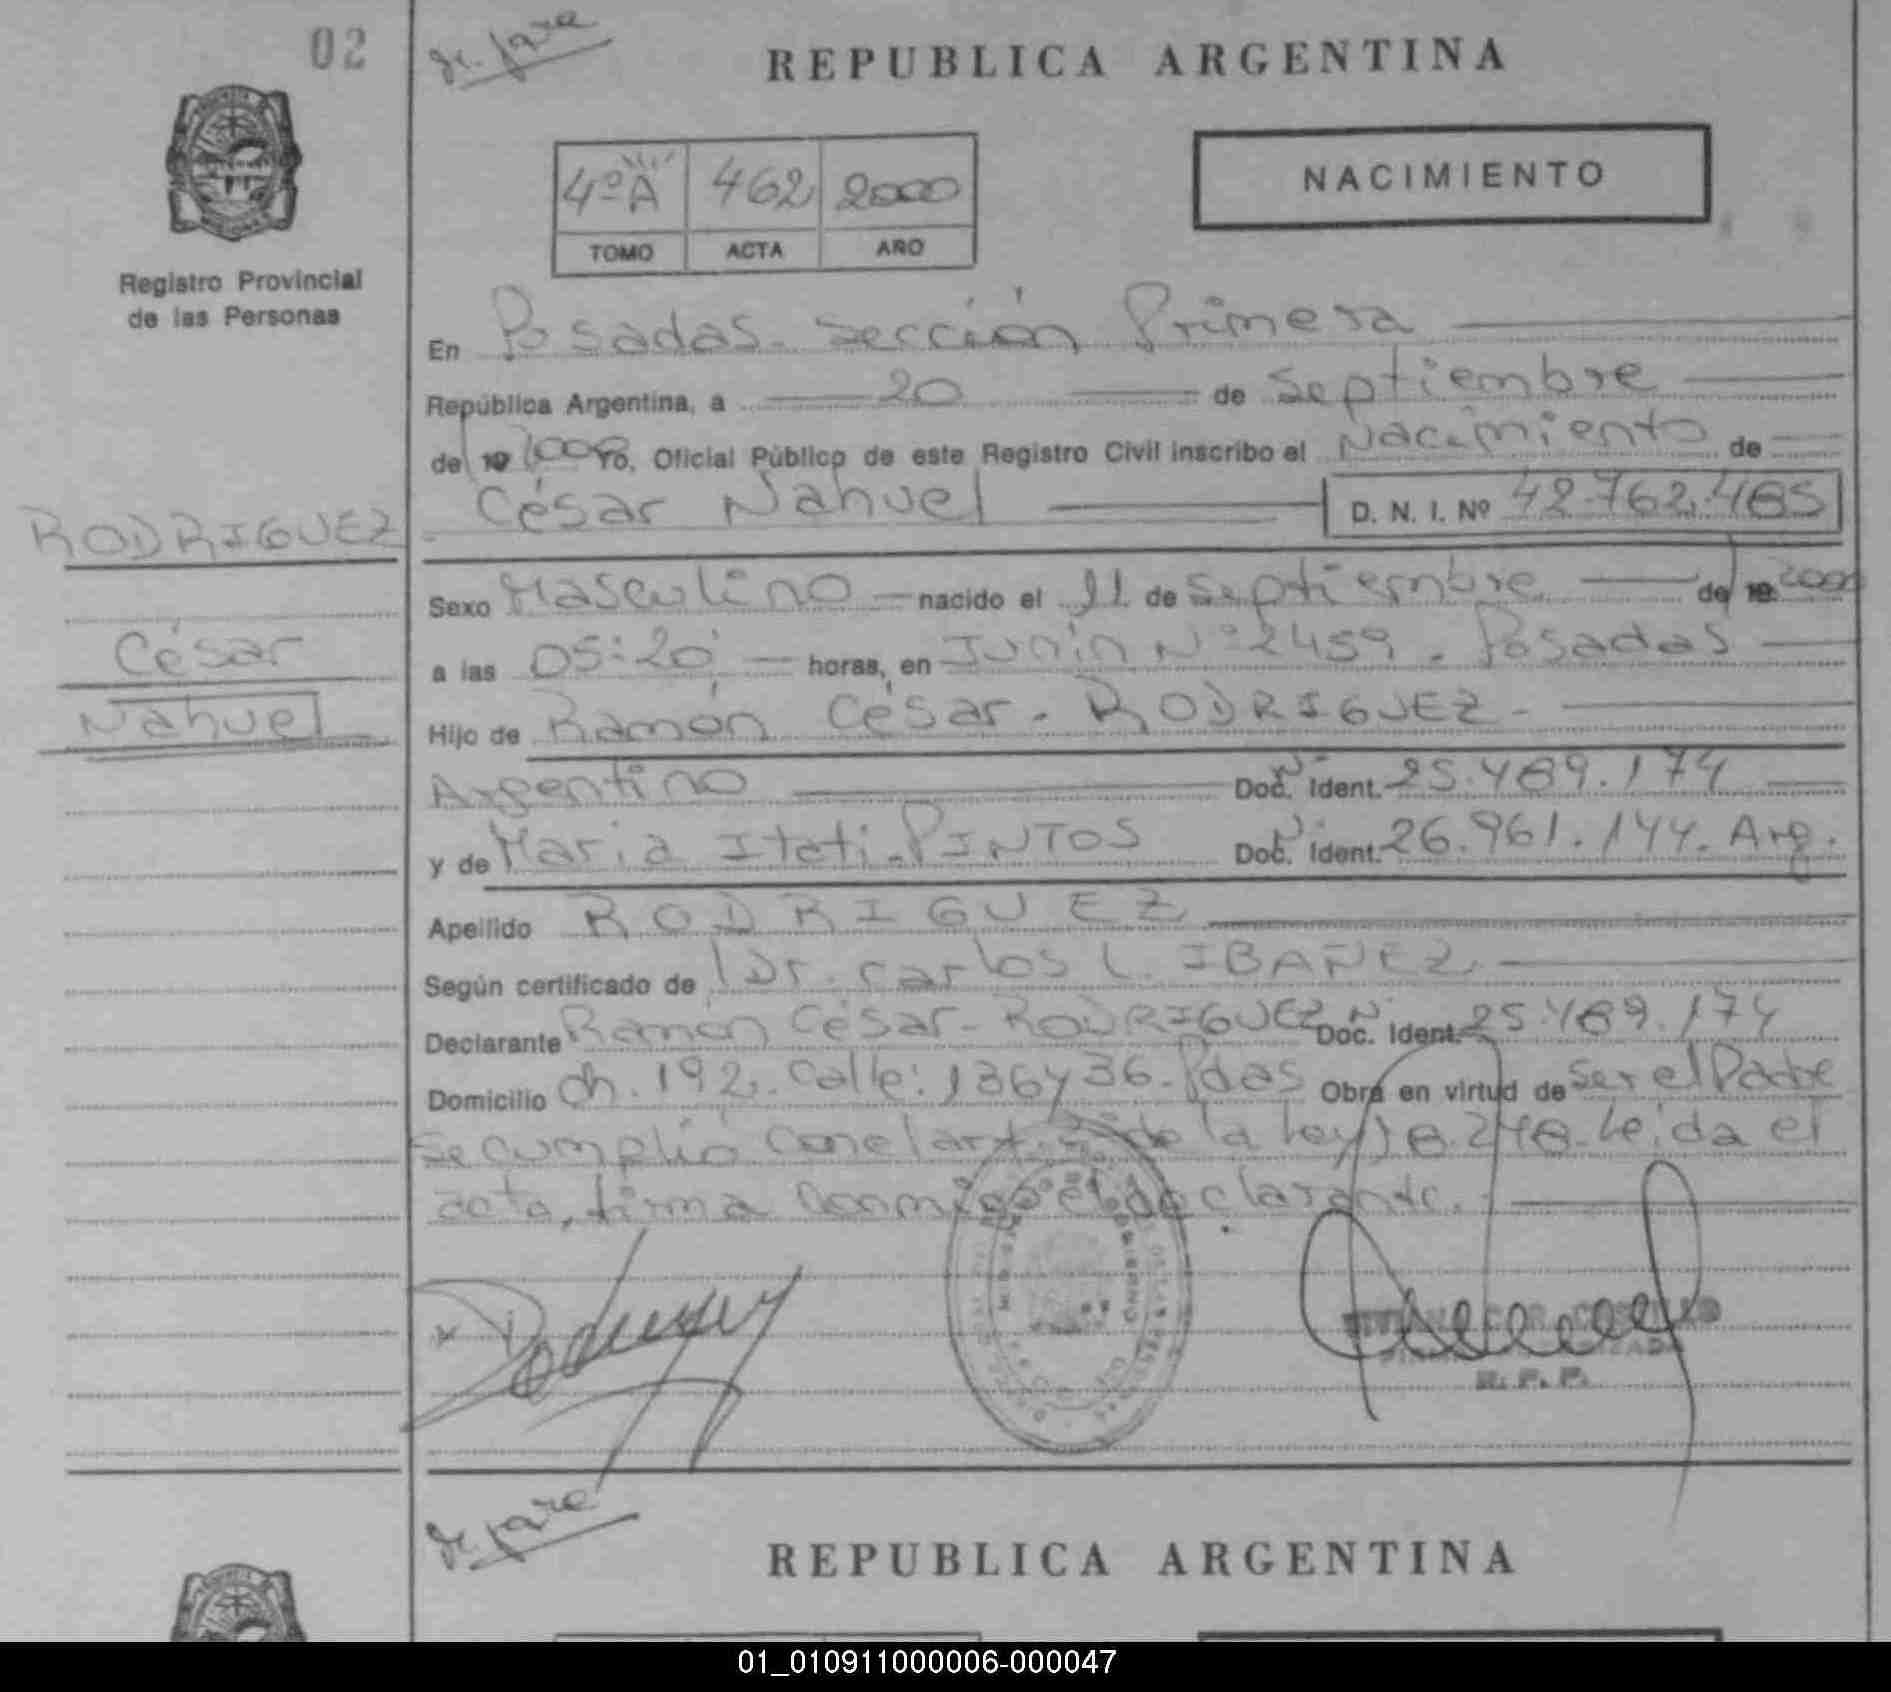 02
de. pare
REPUBLICA ARGENTINA
4ºA 462 2000
TOMO ACTA AÑO
NACIMIENTO
Registro Provincial
de las Personas
En Posadas. Sección Primera
República Argentina, a 20 de Septiembre
de 19 2000 Yo, Oficial Público de este Registro Civil inscribo el Nacimiento de
César Nahuel D. N. I. Nº 42.762.485
RODRIGUEZ
César
Nahuel
Sexo Masculino nacido el 11 de Septiembre de 19 2000
a las 05:20 horas, en Junín Nº 2459. Posadas
Hijo de Ramón César. RODRIGUEZ.
Argentino Doc. Ident. 25.489.174
y de Maria Itati. PINTOS Doc. Ident. 26.961.144. Arg.
Apellido RODRIGUEZ
Según certificado de Dr. Carlos L. IBAÑEZ.
Declarante Ramón César. RODRIGUEZ Doc. Ident. 25.489.174
Domicilio Ch. 192. Calle: 136 y 36. Pdas Obra en virtud de Ser el Padre
Se cumplió con el art. de la Ley 18.248. Leida el
acta, firma conmigo el declarante.
R. P. P.
REPUBLICA ARGENTINA
01_010911000006-000047